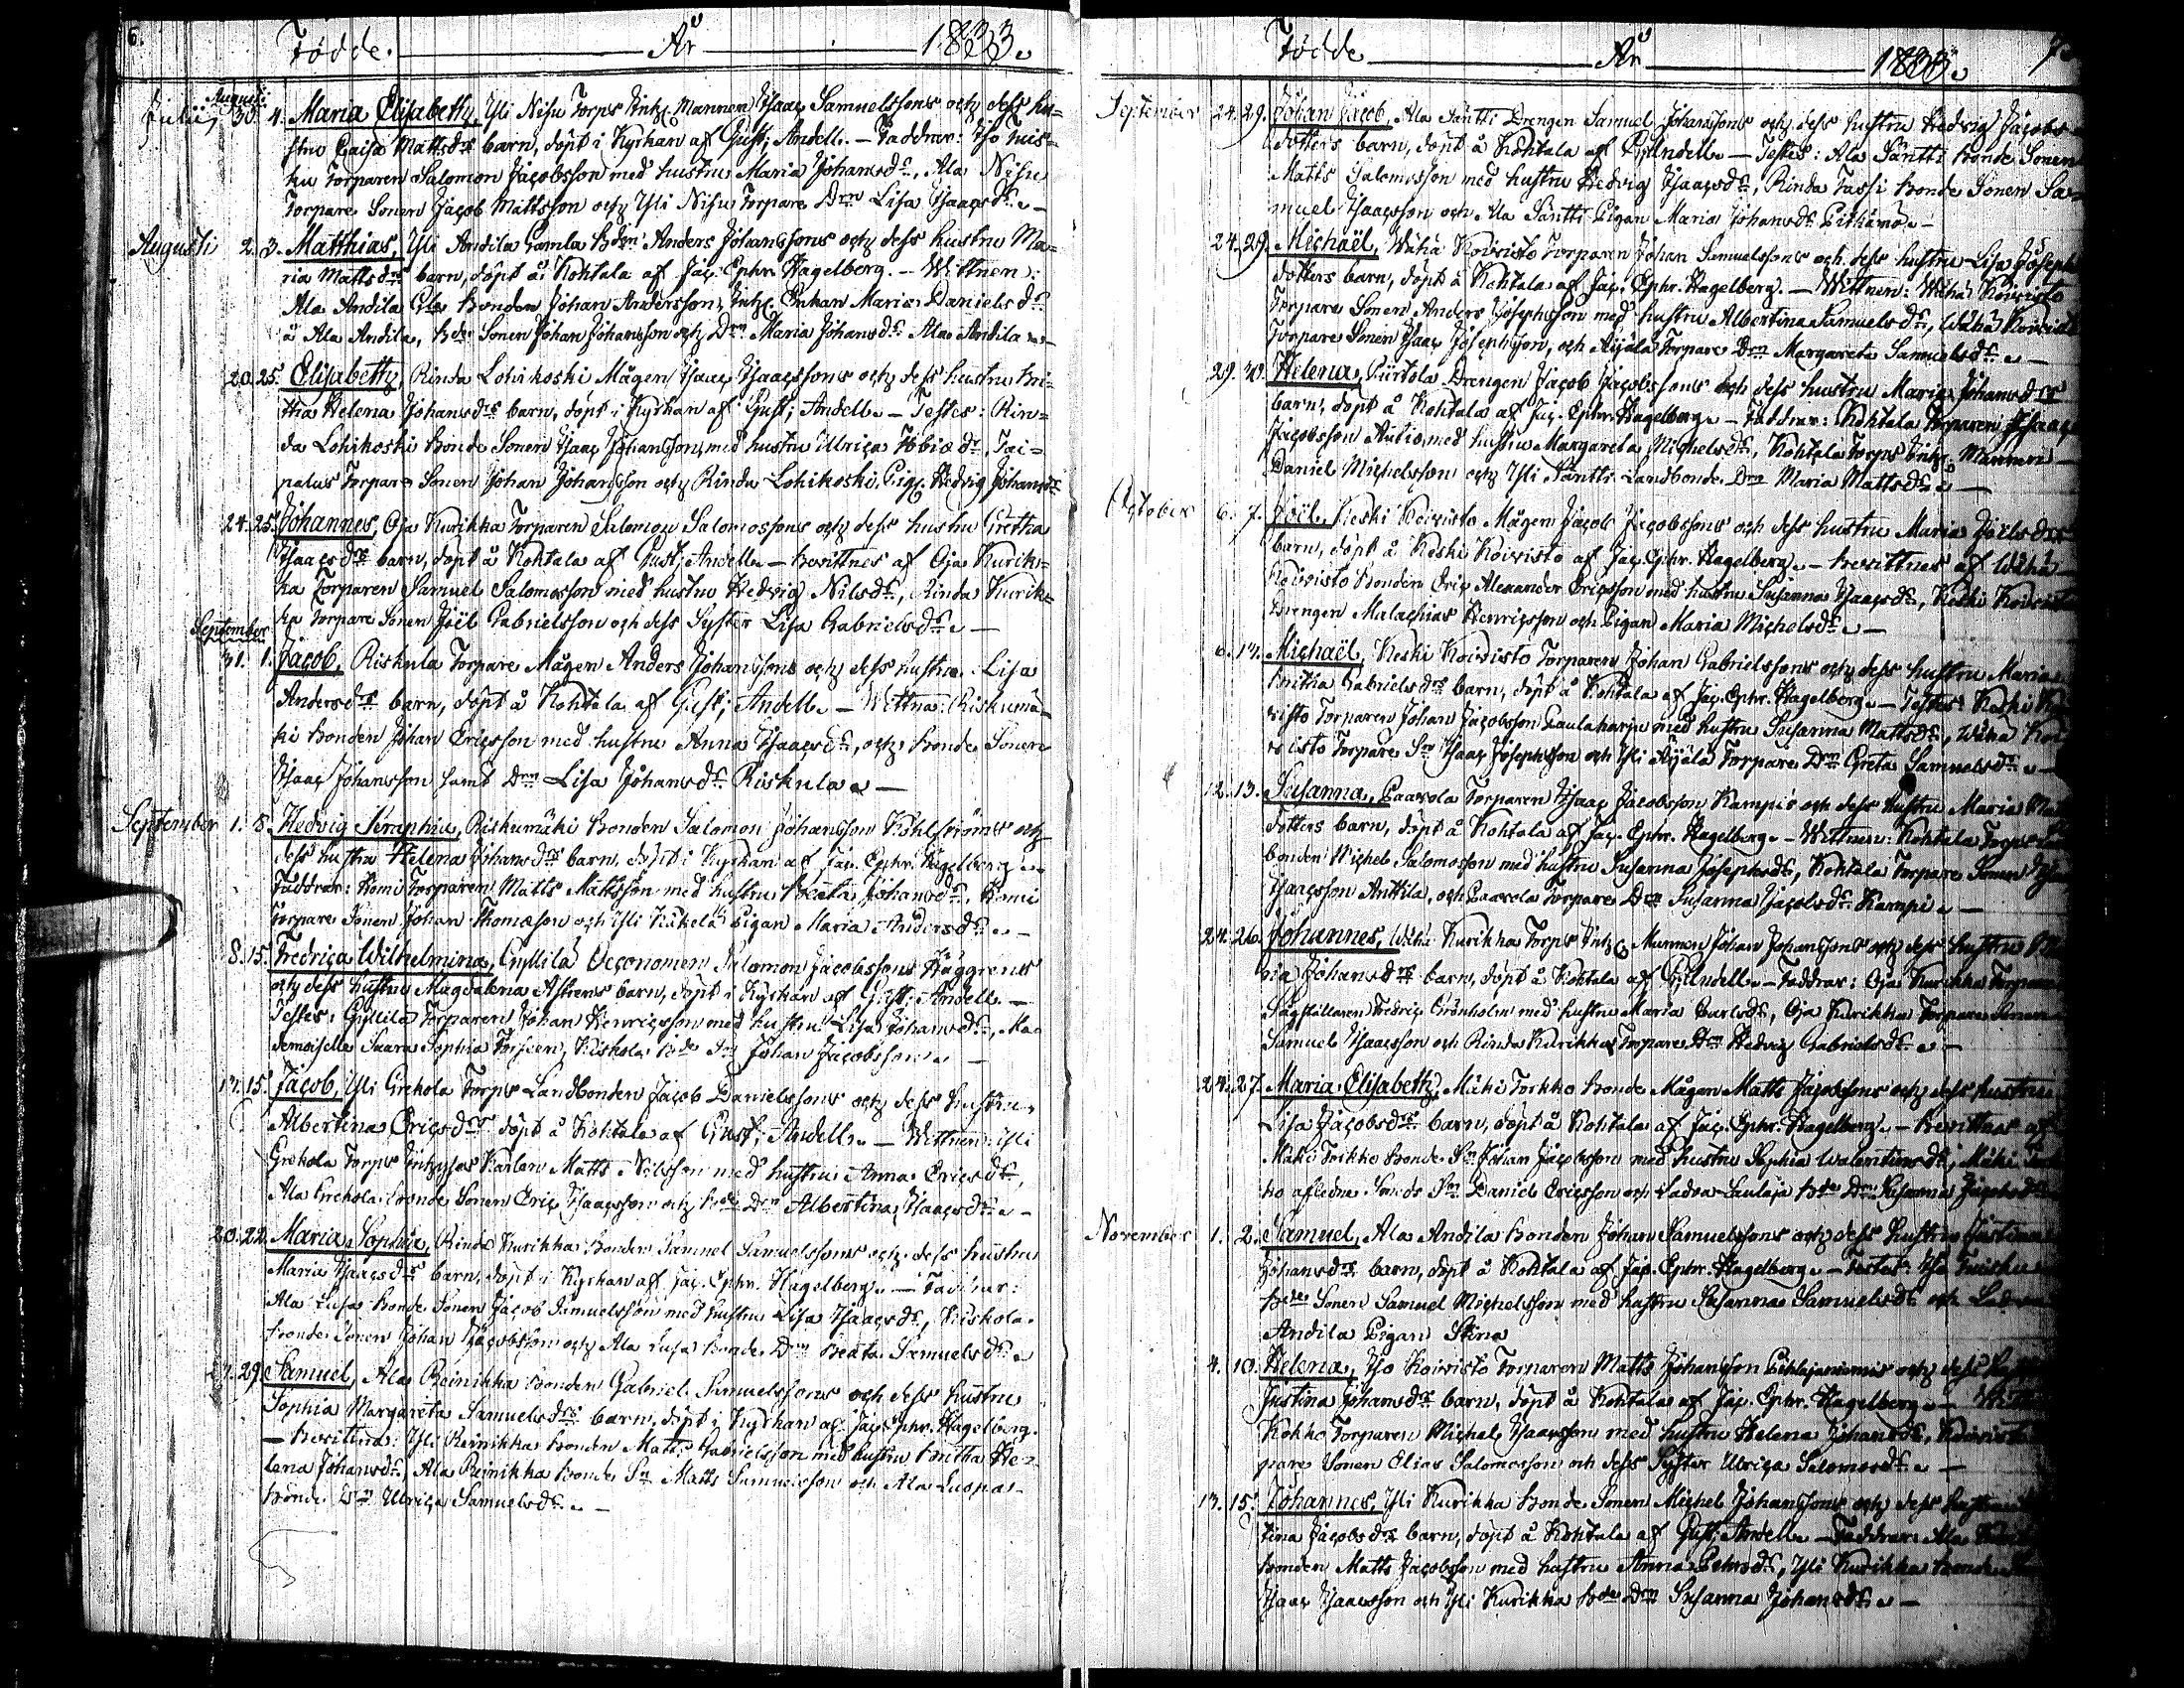 6.
Tödde. År 1833.
Julii Augusti 30. 4. Maria Elisabeth, Yli Nisu Torps Inhs: Mannen Isaac Samuelssons och dess hu-
stru Caisa Mattsdrs barn, döpt i Kyrkan af Gust; Andell. – Faddrar: Iso Tuis-
ku Torparen Salomon Jacobsson med hustru Maria Johansdr, Ala Nisu
Torpare Sonen Jacob Mattsson och Yli Nisu Torpare Drn Lisa Isaacsdr. –
Augusti 2. 3. Matthias, Yli Andila Gamla Bdn Anders Johanssons och dess hustru Ma-
ria Mattsdrs barn, döpt å Kohtala af Jac. Ephr. Hagelberg. – Wittnen:
Ala Andila Bonden Johan Andersson, Inhs. Enkan Maria Danielsdr
å Ala Andila, Bde Sonen Johan Johansson och Drn Maria Johansdr Ala Andila. –
20. 25. Elisabeth, Rinda Lohikoski Mågen Isaac Isaacssons och dess hustru Bri-
tha Helena Johansdrs barn, döpt i Kyrkan af Gust; Andell. – Testes: Rin-
da Lohikoski Bonde Sonen Isaac Johansson med hustru Ulrica Tobiædr, Tai-
palus Torpare Sonen Johan Johansson och Rinda Lohikoski Pig. Hedvig Johansdr
24. 25. Johannes, Oja Kurikka Torparen Salomon Salomossons och dess hustru Gretha
Isaacsdrs barn, döpt å Kohtala af Gust; Andell. – Bevittnes af Oja Kurik-
ka Torparen Samuel Salomosson med hustru Hedvig Nilsdr, Rinda Kurik-
ka Torpare Sonen Joël Gabrielsson och dess Syster Lisa Gabrielsdr. –
September
31. 1. Jacob, Riskula Torpare Mågen Anders Johanssons och dess hustru Lisa
Andersdrs barn, döpt å Kohtala af Gust; Andell. – Wittna: Riskumä-
ki Bonden Johan Ericsson med hustru Anna Isaacsdr, och Bonde Sonen
Isaac Johansson samt Drn Lisa Johansdr Riskula. –
September 1. 8. Hedvig Seraphia, Riskumäki Bonden Salomon Johansson Kohlströms och
dess hustru Helena Johansdrs barn, döpt i Kyrkan af Jac. Ephr. Hagelberg. –
Faddrar: Komi Torparen Matts Mattsson med hustru Beata Johansdr, Komi
Torpare Sonen Johan Thomasson och Yli Käkelä Pigan Maria Andersdr. –
8. 15. Fredrica Wilhelmina, Gyllilä Oeconomen Salomon Jacobssons Häggrens
och dess hustru Magdalena Astrens barn, döpt i Kyrkan af Gust; Andell. –
Testes: Gyllilä Torparen Johan Henricsson med hustru Lisa Johansdr, Ma-
demoiselle Saara Sophia Forseen, Kiskola Bde Sn Johan Jacobsson. –
13. 15. Jacob, Yli Grekola Torps Landbonden Jacob Danielssons och dess hustru
Albertina Ericsdrs döpt å Kohtala af Gust; Andell. – Wittnen: Yli
Grekola Torps Inhyses Karlen Matts Nilsson med hustru Anna Ericsdr,
Ala Grekola Bonde Sonen Eric Isaacsson och Bde Drn Albertina Isaacsdr. –
20. 22. Maria Sophia, Rinda Kurikka Bonden Samuel Samuelssons och dess hustru
Maria Isaacsdrs barn, döpt i Kyrkan af Jac. Ephr. Hagelberg. – Faddrar:
Ala Luopa Bonde Sonen Jacob Samuelsson med hustru Lisa Isaacsdr, Kiskola
Bonde Sonen Johan Jacobsson och Ala Luopa Bonde Drn Beata Samuelsdr.
27. 29. Samuel, Ala Reinikka Bonden Gabriel Samuelssons och dess hustru
Sophia Margareta Samuelsdrs barn, döpt i Kyrkan af Jac. Ephr. Hagelberg.
– Bevittna: Yli Reinikka Bonden Matts Gabrielsson med hustru Britha He-
lena Johansdr, Ala Reinikka Bonde Sn Matts Samuelsson och Ala Luopa
Bonde Drn Ulrica Samuelsdr. –
Tödde År 1833.
September 24. 29. Johan Jacob, Ala Säntti Drengen Samuel Johanssons och dess hustru Hedvig Jacobs
dotters barn, döpt å Kohtala af G. Andell. – Testes: Ala Säntti Bonde Sonen
Matts Salomosson med hustru Hedvig Isaacsdr, Rinda Jassi Bonde Sonen Sa-
muel Isaacsson och Ala Säntti Pigan Maria Johansdr Pitkämö. –
24. 29. Michaël, Wähä Koivisto Torparen Johan Samuelssons och dess hustru Lisa Joseph
dotters barn, döpt å Kohtala af Jac. Ephr. Hagelberg. – Wittnen: Wähä Koivisto
Torpare Sonen Anders Josephsson med hustru Albertina Samuelsdr, Wähä Koivisto
Torpare Sonen Isaac Josephsson, och Äijälä Torpare Drn Margareta Samuelsdr. –
29. 30. Helena, Piirtola Drengen Jacob Jacobssons och dess hustru Maria Johansdrs
barn, döpt å Kohtala af Jac. Ephr. Hagelberg. – Faddrar: Kohtala Torparen Isaac
Jacobsson Autio, med hustru Margareta Michelsdr, Kohtala Torps Inhs. Mannen
Daniel Michelsson och Yli Säntti Landbonde Drn Maria Mattsdr. –
October 6. 7. Joël, Keski Koivisto Mågen Jacob Jacobssons och dess hustru Maria Joëlsdrs
barn, döpt å Keski Koivisto af Jac. Ephr. Hagelberg. – Bevittnes af Wähä
Koivisto Bonden Eric Alexander Ericsson med hustru Susanna Isaacsdr, Keski Koivisto
Drengen Malachias Henricsson och Pigan Maria Michelsdr. –
6. 13. Michaël, Keski Koivisto Torparen Johan Gabrielssons och dess hustru Maria
Britha Gabrielsdrs barn, döpt å Kohtala af Jac. Ephr. Hagelberg. – Testes: Keski
visto Torparen Johan Jacobsson Paulaharju med hustru Susanna Mattsdr, Wähä Koi
visto Torpare Sn Isaac Josephsson och Yli Äijälä Torpare Drn Greta Samuelsdr. –
12. 13. Susanna, Paavola Torparen Isaac Jacobsson Kampis och dess hustru Maria
dotters barn, döpt å Kohtala af Jac. Ephr. Hagelberg. – Wittnen: Kohtala Torps
bonden Michel Salomosson med hustru Susanna Josephsdr, Kohtala Torpare Sonen
Isaacsson Anttila, och Paavola Torpare Drn Susanna Jacobsdr Kampi. –
24. 26. Johannes, Wähä Kurikka Torps Inhs Mannen Johan Johanssons och dess hustru
ria Johansdrs barn, döpt å Kohtala af G. Andell. – Faddrar: Oja Kurikka Torpare
Sågställaren Fredric Grönholm med hustru Maria Carlsdr, Oja Kurikka Torpare Sonen
Samuel Isaacsson och Rinda Kurikka Torpare Drn Hedvig Gabrielsdr. –
24. 27. Maria Elisabeth, Mäki Torkko Bonde Mågen Matts Jacobssons och dess hustru
Lisa Jacobsdrs barn, döpt å Kohtala af Jac. Ephr. Hagelberg. – Bevittnas af
Mäki Torkko Bonde Sn Johan Jacobsson med hustru Sophia Walentinsdr, Mäki
ko afledne Bonde Sn Daniel Ericsson och Ladva Bde Drn Susanna
November 1. 2. Samuel, Ala Andila Bonden Johan Samuelssons och dess hustru Justina
Johansdrs barn, döpt å Kohtala af Jac. Ephr. Hagelberg. – Iso Tuisku
Bde Sonen Samuel Michelsson med hustru Susanna Samuelsdr och
Andila Pigan Stina
4. 10. Helena, Iso Koivisto Torparen Matts Johansson och dess
Justina Johansdrs barn, döpt å Kohtala af Jac. Ephr. Hagelberg. –
Kokko Torparen Michel Isaacsson med hustru Helena Johansdr, Koivisto
pare Sonen Elias Salomosson och dess Syster Ulrica Salomosdr. –
13. 15. Johannes, Yli Kurikka Bonde Sonen Michel Johanssons och dess hustru
tina Jacobsdrs barn, döpt å Kohtala af Gust; Andell. – Faddrar: Ala
Bonden Matts Jacobsson med hustru Anna Pehrsdr, Yli Kurikka Bonde
Isaac Isaacsson och Yli Kurikka Bde Drn Susanna Johansdr. –